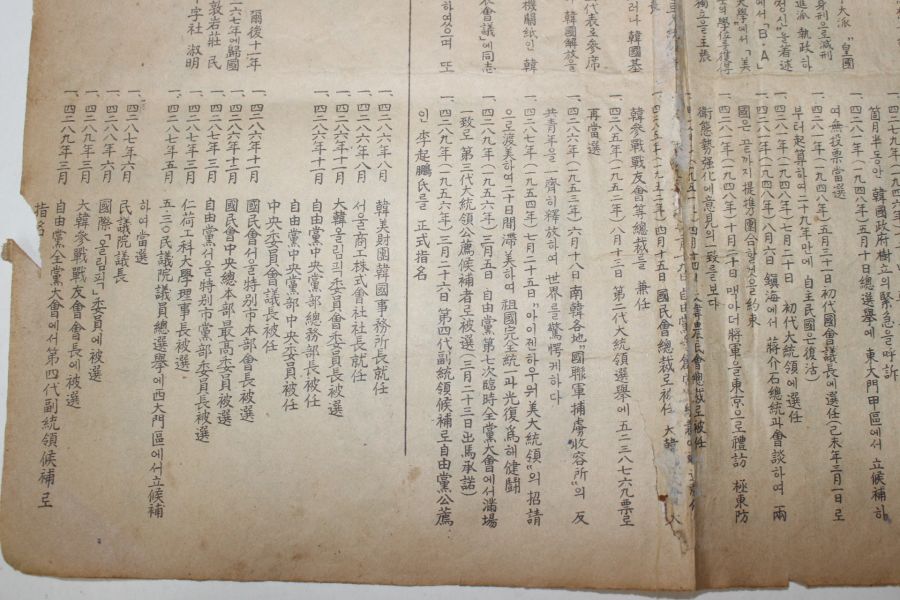 大派 “皇國
身刑으로減刑
進派 執政하
精神」을著述
에서「B·A」
大學」에서「美
學位를獲得
獨立을主張
러나 韓國基
代表로參席
韓國解放을
機關紙인 韓
會議」에同志
하였으며 또
箇月半동안 韓國政府樹立의緊急을呼訴
一、四二八一年(一九四八年)五月十日總選擧에 東大門甲區에서 立候補하
여無投票當選
一、四二八一年(一九四八年)五月三十一日初代國會議長에選任(己未年三月一日로
부터起算하여二十九年만에 自主民國은復活)
一、四二八一年(一九四八年)七月二十日 初代大統領에選任
一、四二八一年(一九四八年)八月六日 鎭海에서 蔣介石總統과會談하여 兩
國은 끝까지提携團合할것을約束
一、四二八一年(一九四八年)十月二十日 맥아더將軍을東京으로禮訪 極東防
衛態勢强化에意見의一致를보다
四月十五日 國民會總裁로被任 大韓
韓參戰戰友會等總裁를 兼任
一、四二八五年(一九五二年)八月十三日 第二代大統領選擧에 五二三八七六九票로
再當選
一、四二八六年(一九五三年)六月十八日南韓各地“國聯軍捕虜收容所”의 反
共靑年을 一齊히釋放하여 世界를驚愕케하다
一、四二八七年(一九五四年)七月二十五日“아이젠하우워美大統領”의 招請
으로渡美하여二十日間滯美하여 祖國完全統一과光復爲해健鬪
一、四二八九年(一九五六年)三月五日 自由黨第七次臨時全黨大會에서滿場
一致로 第三代大統領公薦候補者로被選(三月二十三日出馬承諾)
一、四二八九年(一九五六年)三月二十六日 第四代副統領候補로自由黨公薦
인 李起鵬氏를 正式指名
爾後十一年
二六七年에歸國
敦岩莊 民
字社 淑明
一、四二八六年八月 韓美財團韓國事務所長就任
一、四二八六年十月 서울商工株式會社社長就任
一、四二八六年十一月 大韓올림픽委員會委員長被選
一、四二八六年十二月 自由黨中央黨部總務部長被任
自由黨中央黨部中央委員被任
中央委員會議長被任
一、四二八六年十二月 國民會서울特別市本部會長被選
一、四二八六年十二月 國民會中央總本部最高委員被選
一、四二八七年三月 自由黨서울特別市黨部委員長被選
一、四二八七年五月 仁荷工科大學理事長被選
五·三○民議院議員總選擧에西大門區에서立候補
하여當選
一、四二八七年六月 民議院議長
一、四二八八年六月 國際「올림픽」委員에被選
一、四二八九年三月 大韓參戰戰友會會長에被選
一、四二八九年三月 自由黨全黨大會에서第四代副統領候補로
指名